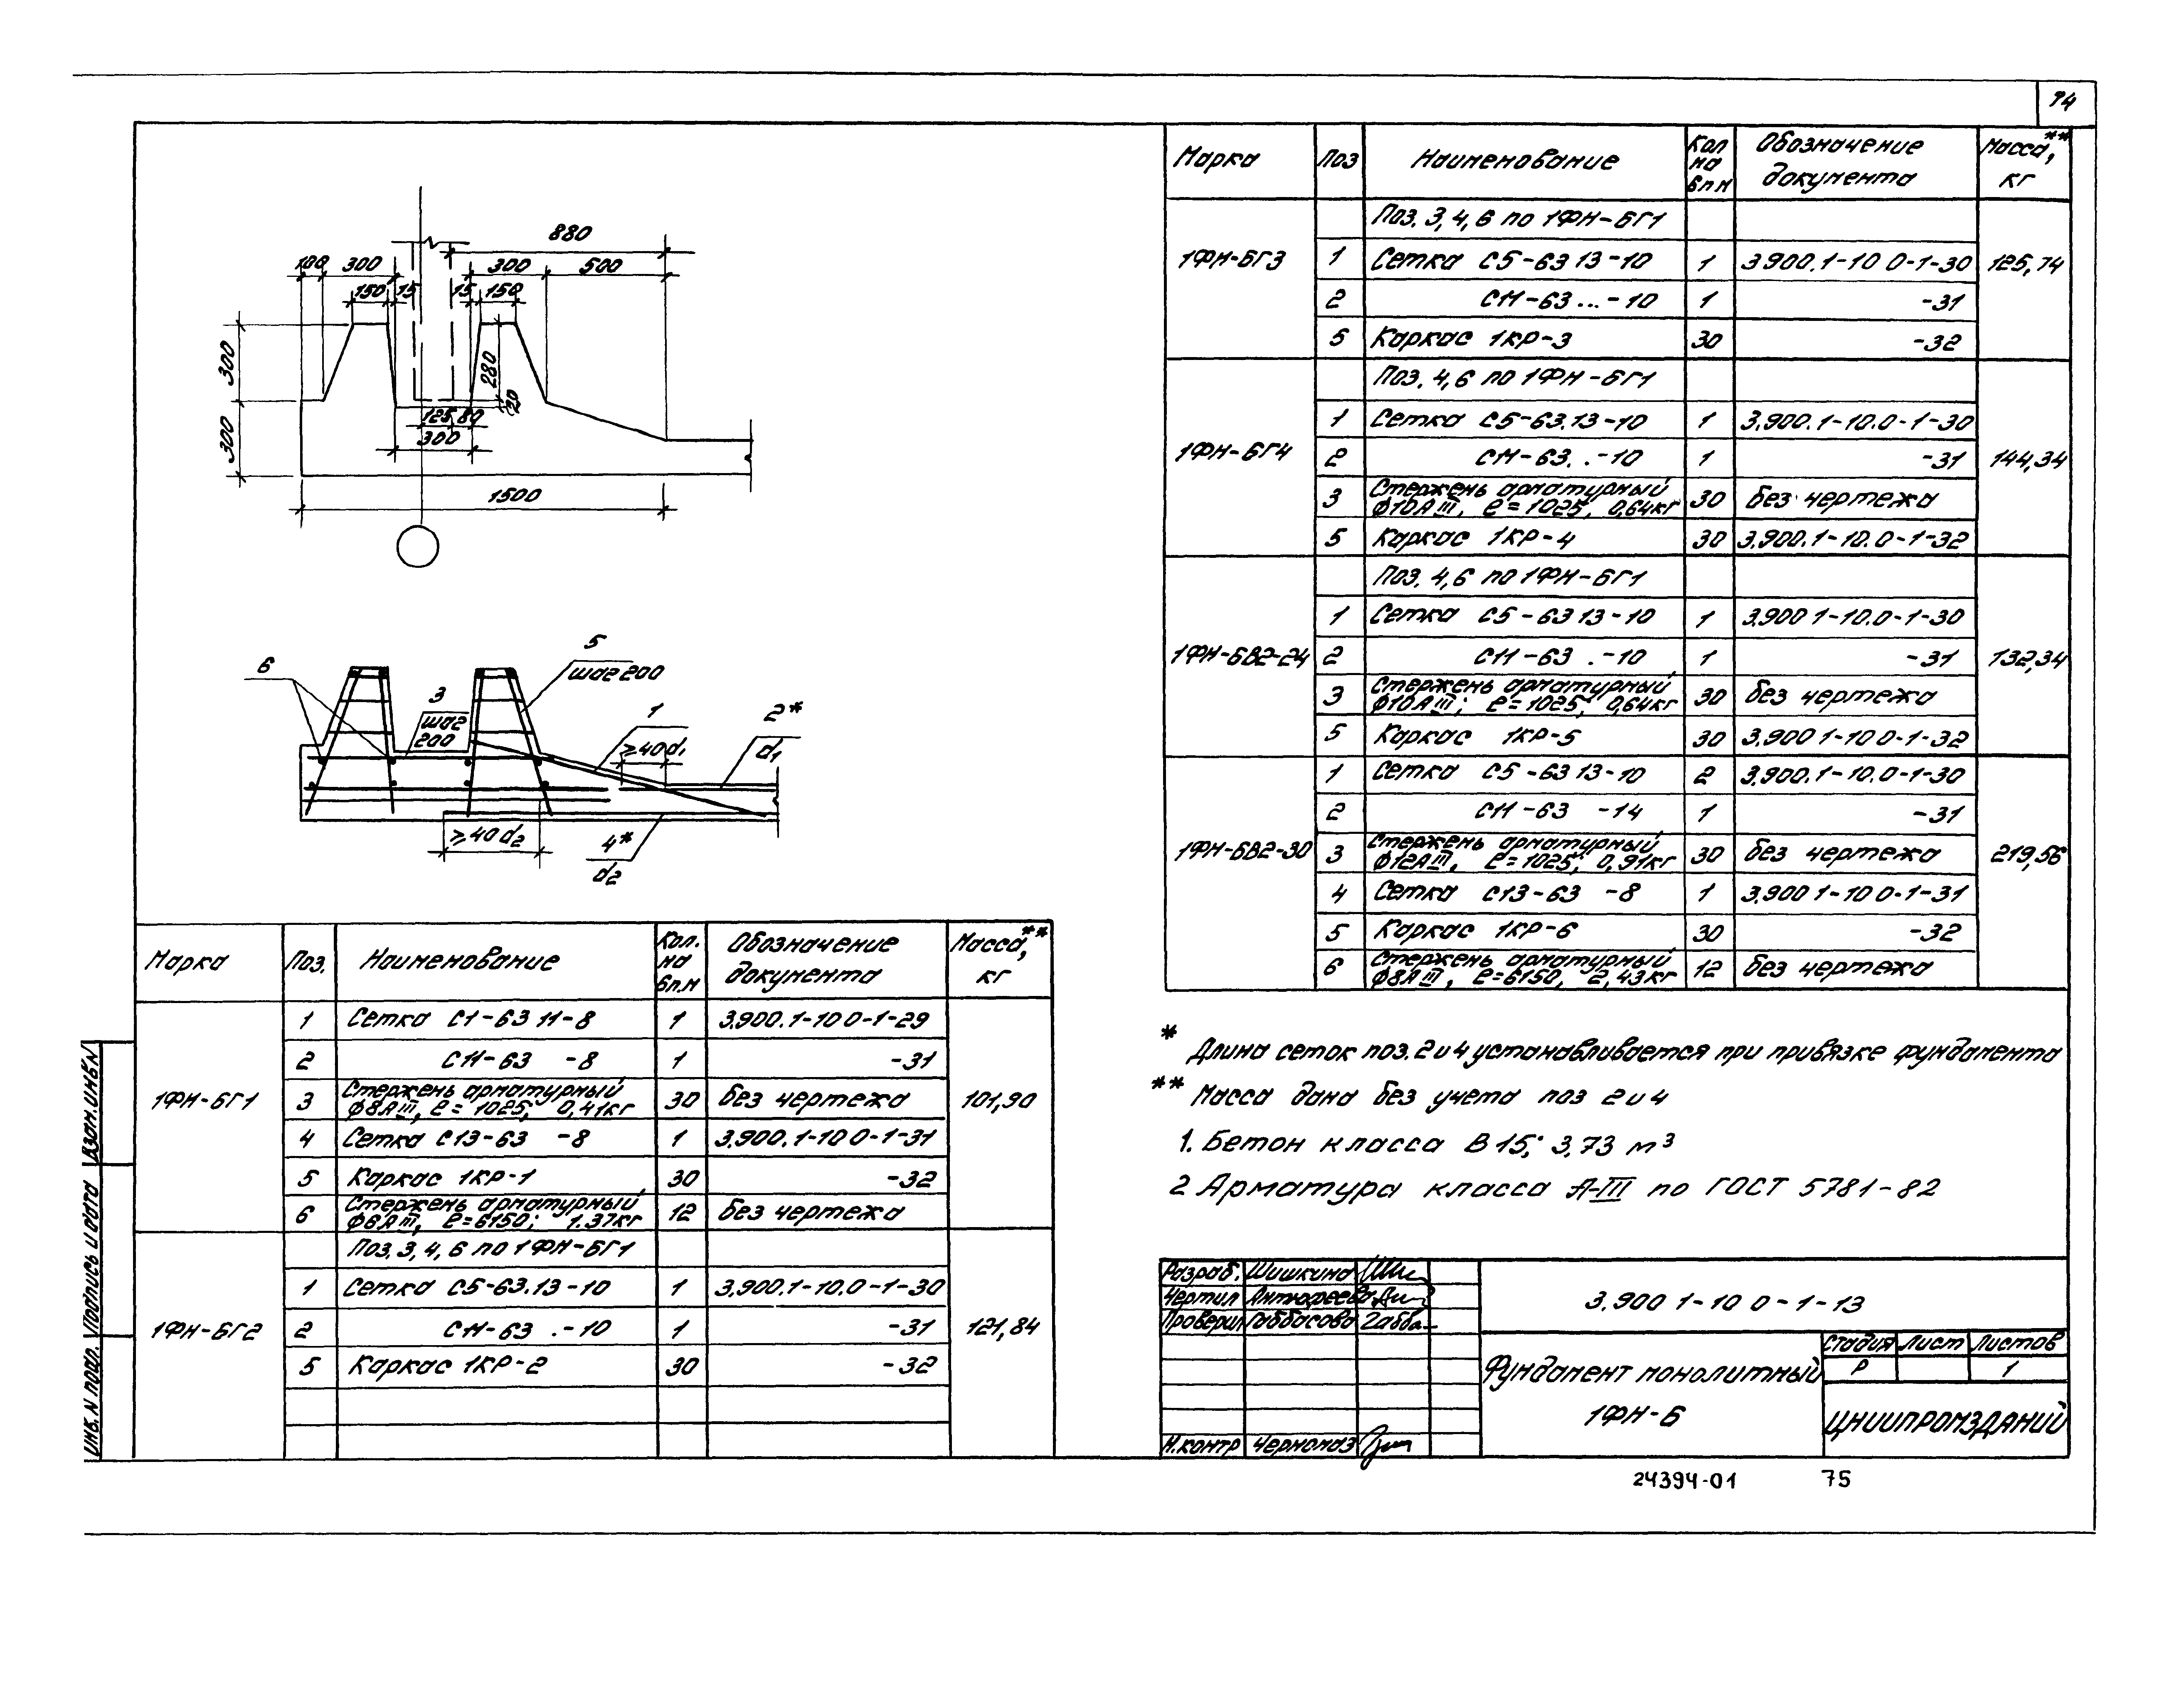 74
880
100 300 300 500
150 15 15 150
300
280
20
300
125 80
300
1500
5
шаг 200
6
3
шаг
200
1
≥40d₁
2*
d₁
≥40d₂
4*
d₂
Марка Поз. Наименование Кол. на 6п.м Обозначение документа Масса,** кг
1ФН-БГ1 101,90
1 Сетка С1-63 11-8 1 3.900.1-10 0-1-29
2 С11-63 -8 1 -31
3 Стержень арматурный ⌀8АIII, ℓ=1025; 0,41кг 30 Без чертежа
4 Сетка С13-63 -8 1 3.900.1-10 0-1-31
5 Каркас 1КР-1 30 -32
6 Стержень арматурный ⌀6АIII, ℓ=6150; 1.37кг 12 Без чертежа
1ФН-БГ2 121,84
Поз. 3, 4, 6 по 1ФН-БГ1
1 Сетка С5-63.13-10 1 3.900.1-10.0-1-30
2 С11-63 .-10 1 -31
5 Каркас 1КР-2 30 -32
Марка Поз Наименование Кол на 6п м Обозначение документа Масса,** кг
1ФН-БГ3 125,74
Поз. 3, 4, 6 по 1ФН-БГ1
1 Сетка С5-63 13-10 1 3 900.1-10 0-1-30
2 С11-63...-10 1 -31
5 Каркас 1КР-3 30 -32
1ФН-БГ4 144,34
Поз. 4, 6 по 1ФН-БГ1
1 Сетка С5-63.13-10 1 3.900.1-10.0-1-30
2 С11-63. .-10 1 -31
3 Стержень арматурный ⌀10АIII, ℓ=1025, 0,64кг 30 Без чертежа
5 Каркас 1КР-4 30 3.900.1-10.0-1-32
1ФН-БВ2-24 132,34
Поз. 4, 6 по 1ФН-БГ1
1 Сетка С5-63 13-10 1 3.900 1-10.0-1-30
2 С11-63 .-10 1 -31
3 Стержень арматурный ⌀10АIII; ℓ=1025; 0,64кг 30 Без чертежа
5 Каркас 1КР-5 30 3.900 1-10 0-1-32
1ФН-БВ2-30 219,56
1 Сетка С5-63 13-10 2 3.900.1-10.0-1-30
2 С11-63 -14 1 -31
3 Стержень арматурный ⌀12АIII, ℓ=1025; 0,91кг 30 Без чертежа
4 Сетка С13-63 -8 1 3.900 1-10 0-1-31
5 Каркас 1КР-6 30 -32
6 Стержень арматурный ⌀8АIII, ℓ=6150, 2,43кг 12 Без чертежа
* Длина сеток поз. 2 и 4 устанавливается при привязке фундамента
** Масса дана без учета поз 2 и 4
1. Бетон класса В15; 3,73 м³
2 Арматура класса А-III по ГОСТ 5781-82
Разраб. Шишкина
Чертил
Проверил Габбасова
Н.контр Черномаз
3.900 1-10 0-1-13
Фундамент монолитный
1ФН-Б
Стадия Лист Листов
Р 1
ЦНИИПРОМЗДАНИЙ
24394-01 75
Инв. N подл. Подпись и дата Взам.инв.N